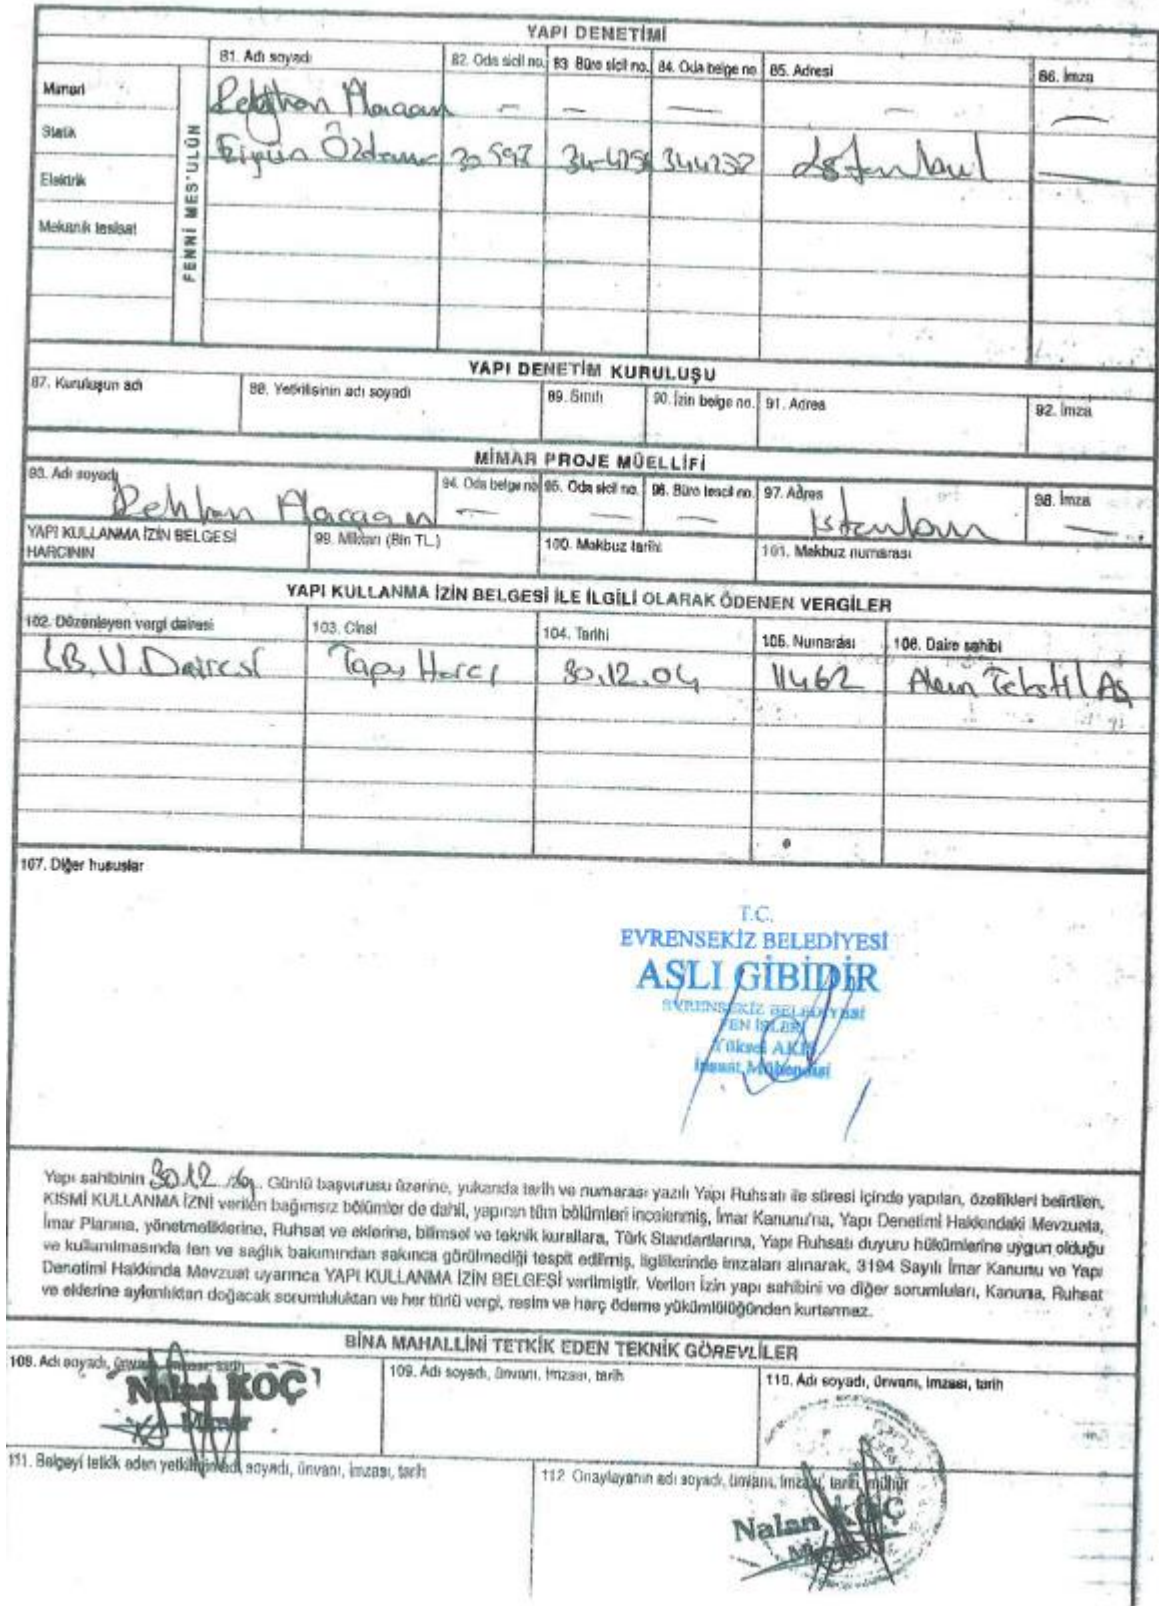 YAPI DENETİMİ
81. Adı soyadı 82. Oda sicil no. 83 Büro sicil no. 84. Oda belge no 85. Adresi 86. İmza
FENNİ MES'ULÜN
Mimari — — — — —
Statik Özdemir 30597 344232 İstanbul —
Elektrik
Mekanik tesisat
YAPI DENETİM KURULUŞU
87. Kuruluşun adı 88. Yetkilisinin adı soyadı 89. Sınıfı 90. İzin belge no. 91. Adres 92. İmza
MİMAR PROJE MÜELLİFİ
93. Adı soyadı 94. Oda belge no 95. Oda sicil no. 96. Büro tescil no. 97. Adres 98. İmza
— — — İstanbul —
YAPI KULLANMA İZİN BELGESİ HARCININ 99. Miktarı (Bin TL.) 100. Makbuz tarihi 101. Makbuz numarası
YAPI KULLANMA İZİN BELGESİ İLE İLGİLİ OLARAK ÖDENEN VERGİLER
102. Düzenleyen vergi dairesi 103. Cinsi 104. Tarihi 105. Numarası 106. Daire sahibi
V. Dairesi Tapu Harcı 30.12.04 11462 Tekstil AŞ
107. Diğer hususlar
T.C.
EVRENSEKİZ BELEDİYESİ
ASLI GİBİDİR
EVRENSEKİZ BELEDİYESİ
FEN İŞLERİ
Yüksel AKIŞ
İnşaat Mühendisi
Yapı sahibinin 30.12.04. Günlü başvurusu üzerine, yukarıda tarih ve numarası yazılı Yapı Ruhsatı ile süresi içinde yapılan, özellikleri belirtilen,
KISMİ KULLANMA İZNİ verilen bağımsız bölümler de dahil, yapının tüm bölümleri incelenmiş, İmar Kanunu'na, Yapı Denetimi Hakkındaki Mevzuata,
İmar Planına, yönetmeliklerine, Ruhsat ve eklerine, bilimsel ve teknik kurallara, Türk Standartlarına, Yapı Ruhsatı duyuru hükümlerine uygun olduğu
ve kullanılmasında fen ve sağlık bakımından sakınca görülmediği tespit edilmiş, ilgililerinde imzaları alınarak, 3194 Sayılı İmar Kanunu ve Yapı
Denetimi Hakkında Mevzuat uyarınca YAPI KULLANMA İZİN BELGESİ verilmiştir. Verilen izin yapı sahibini ve diğer sorumluları, Kanuna, Ruhsat
ve eklerine aykırılıktan doğacak sorumluluktan ve her türlü vergi, resim ve harç ödeme yükümlülüğünden kurtarmaz.
BİNA MAHALLİNİ TETKİK EDEN TEKNİK GÖREVLİLER
108. Adı soyadı, ünvanı, imzası, tarih 109. Adı soyadı, ünvanı, imzası, tarih 110. Adı soyadı, ünvanı, imzası, tarih
Nalan KOÇ
Mimar
111. Belgeyi tetkik eden yetkilinin adı soyadı, ünvanı, imzası, tarih 112. Onaylayanın adı soyadı, ünvanı, imzası, tarih, mühür
Nalan KOÇ
Mimar